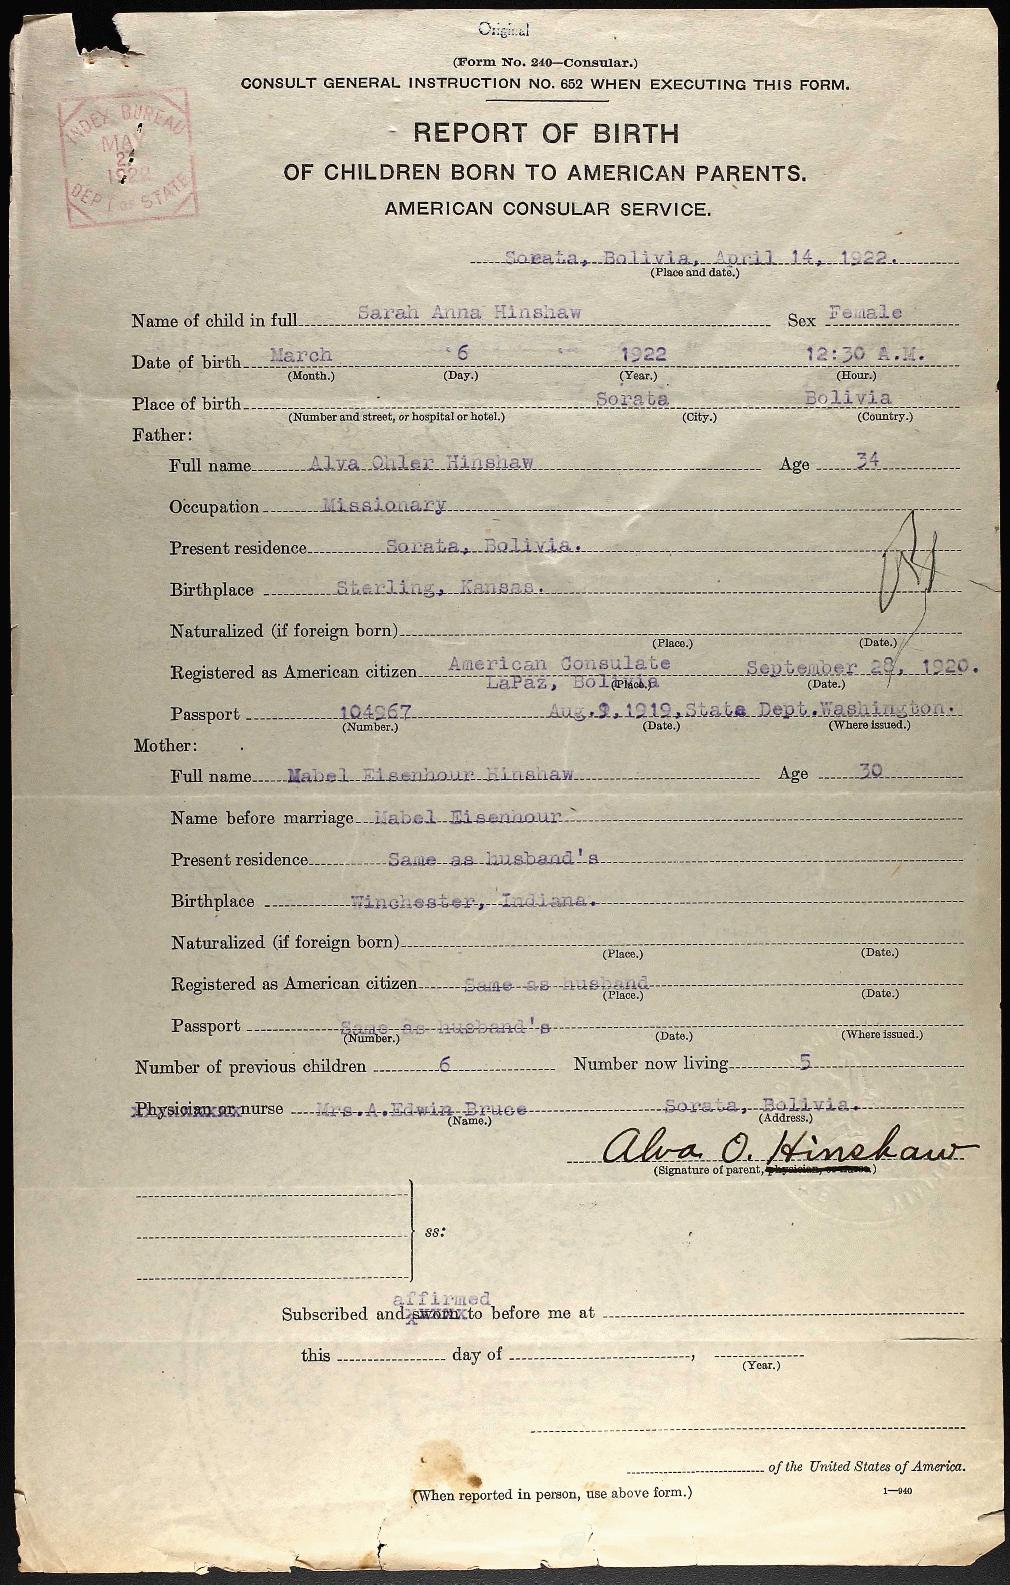 Original
(Form No. 240—Consular.)
CONSULT GENERAL INSTRUCTION NO. 652 WHEN EXECUTING THIS FORM.
INDEX BUREAU
MAY
1922
DEPT OF STATE
REPORT OF BIRTH
OF CHILDREN BORN TO AMERICAN PARENTS.
AMERICAN CONSULAR SERVICE.
Sorata, Bolivia, April 14, 1922.
(Place and date.)
Name of child in full Sarah Anna Hinshaw Sex Female
Date of birth March 6 1922 12:30 A.M.
(Month.) (Day.) (Year.) (Hour.)
Place of birth Sorata Bolivia
(Number and street, or hospital or hotel.) (City.) (Country.)
Father:
Full name Alva Ohler Hinshaw Age 34
Occupation Missionary
Present residence Sorata, Bolivia.
Birthplace Sterling, Kansas.
Naturalized (if foreign born)
(Place.) (Date.)
Registered as American citizen American Consulate September 28, 1920.
LaPaz, Bolivia (Place.) (Date.)
Passport 104967 Aug.9,1919,State Dept.Washington.
(Number.) (Date.) (Where issued.)
Mother:
Full name Mabel Eisenhour Hinshaw Age 30
Name before marriage Mabel Eisenhour
Present residence Same as husband's
Birthplace Winchester, Indiana.
Naturalized (if foreign born)
(Place.) (Date.)
Registered as American citizen Same as husband
(Place.) (Date.)
Passport Same as husband's
(Number.) (Date.) (Where issued.)
Number of previous children 6 Number now living 5
Physician or nurse Mrs.A.Edwin Bruce Sorata, Bolivia.
(Name.) (Address.)
Alva O. Hinshaw
(Signature of parent, physician, or nurse.)
ss:
affirmed
Subscribed and sworn to before me at
this day of ,
(Year.)
of the United States of America.
(When reported in person, use above form.) 1—940